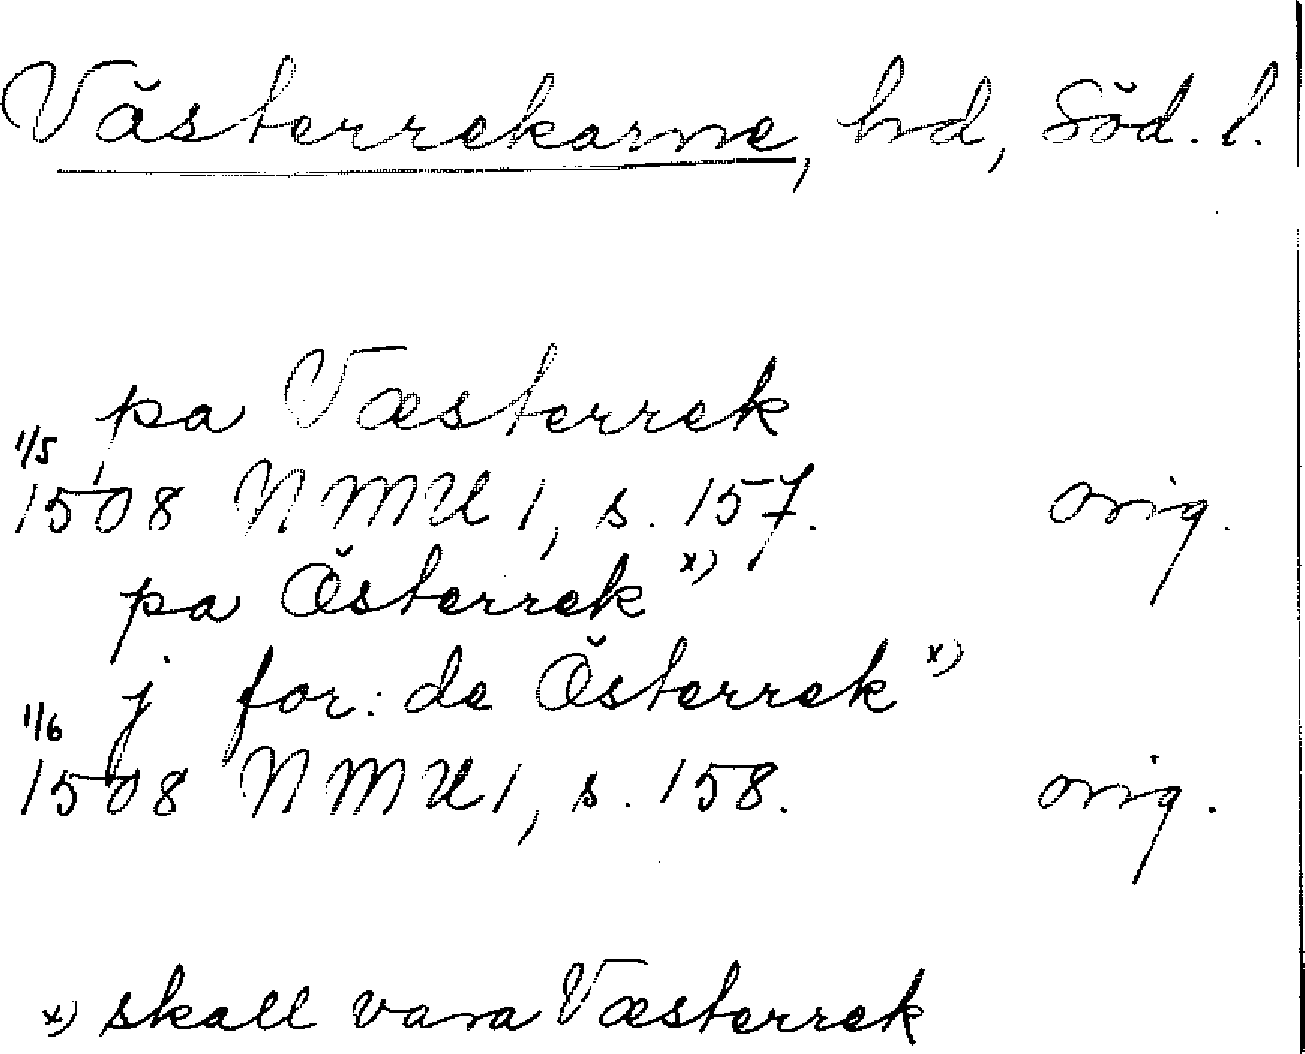 Västerrekarne, hd, Söd. l.
pa Væsterrek
1/5
1508 NMU 1, s. 157. orig.
pa Österrek x)
j for: de Österrek x)
1/6
1508 NMU 1, s. 158. orig.
x) skall vara Væsterrek